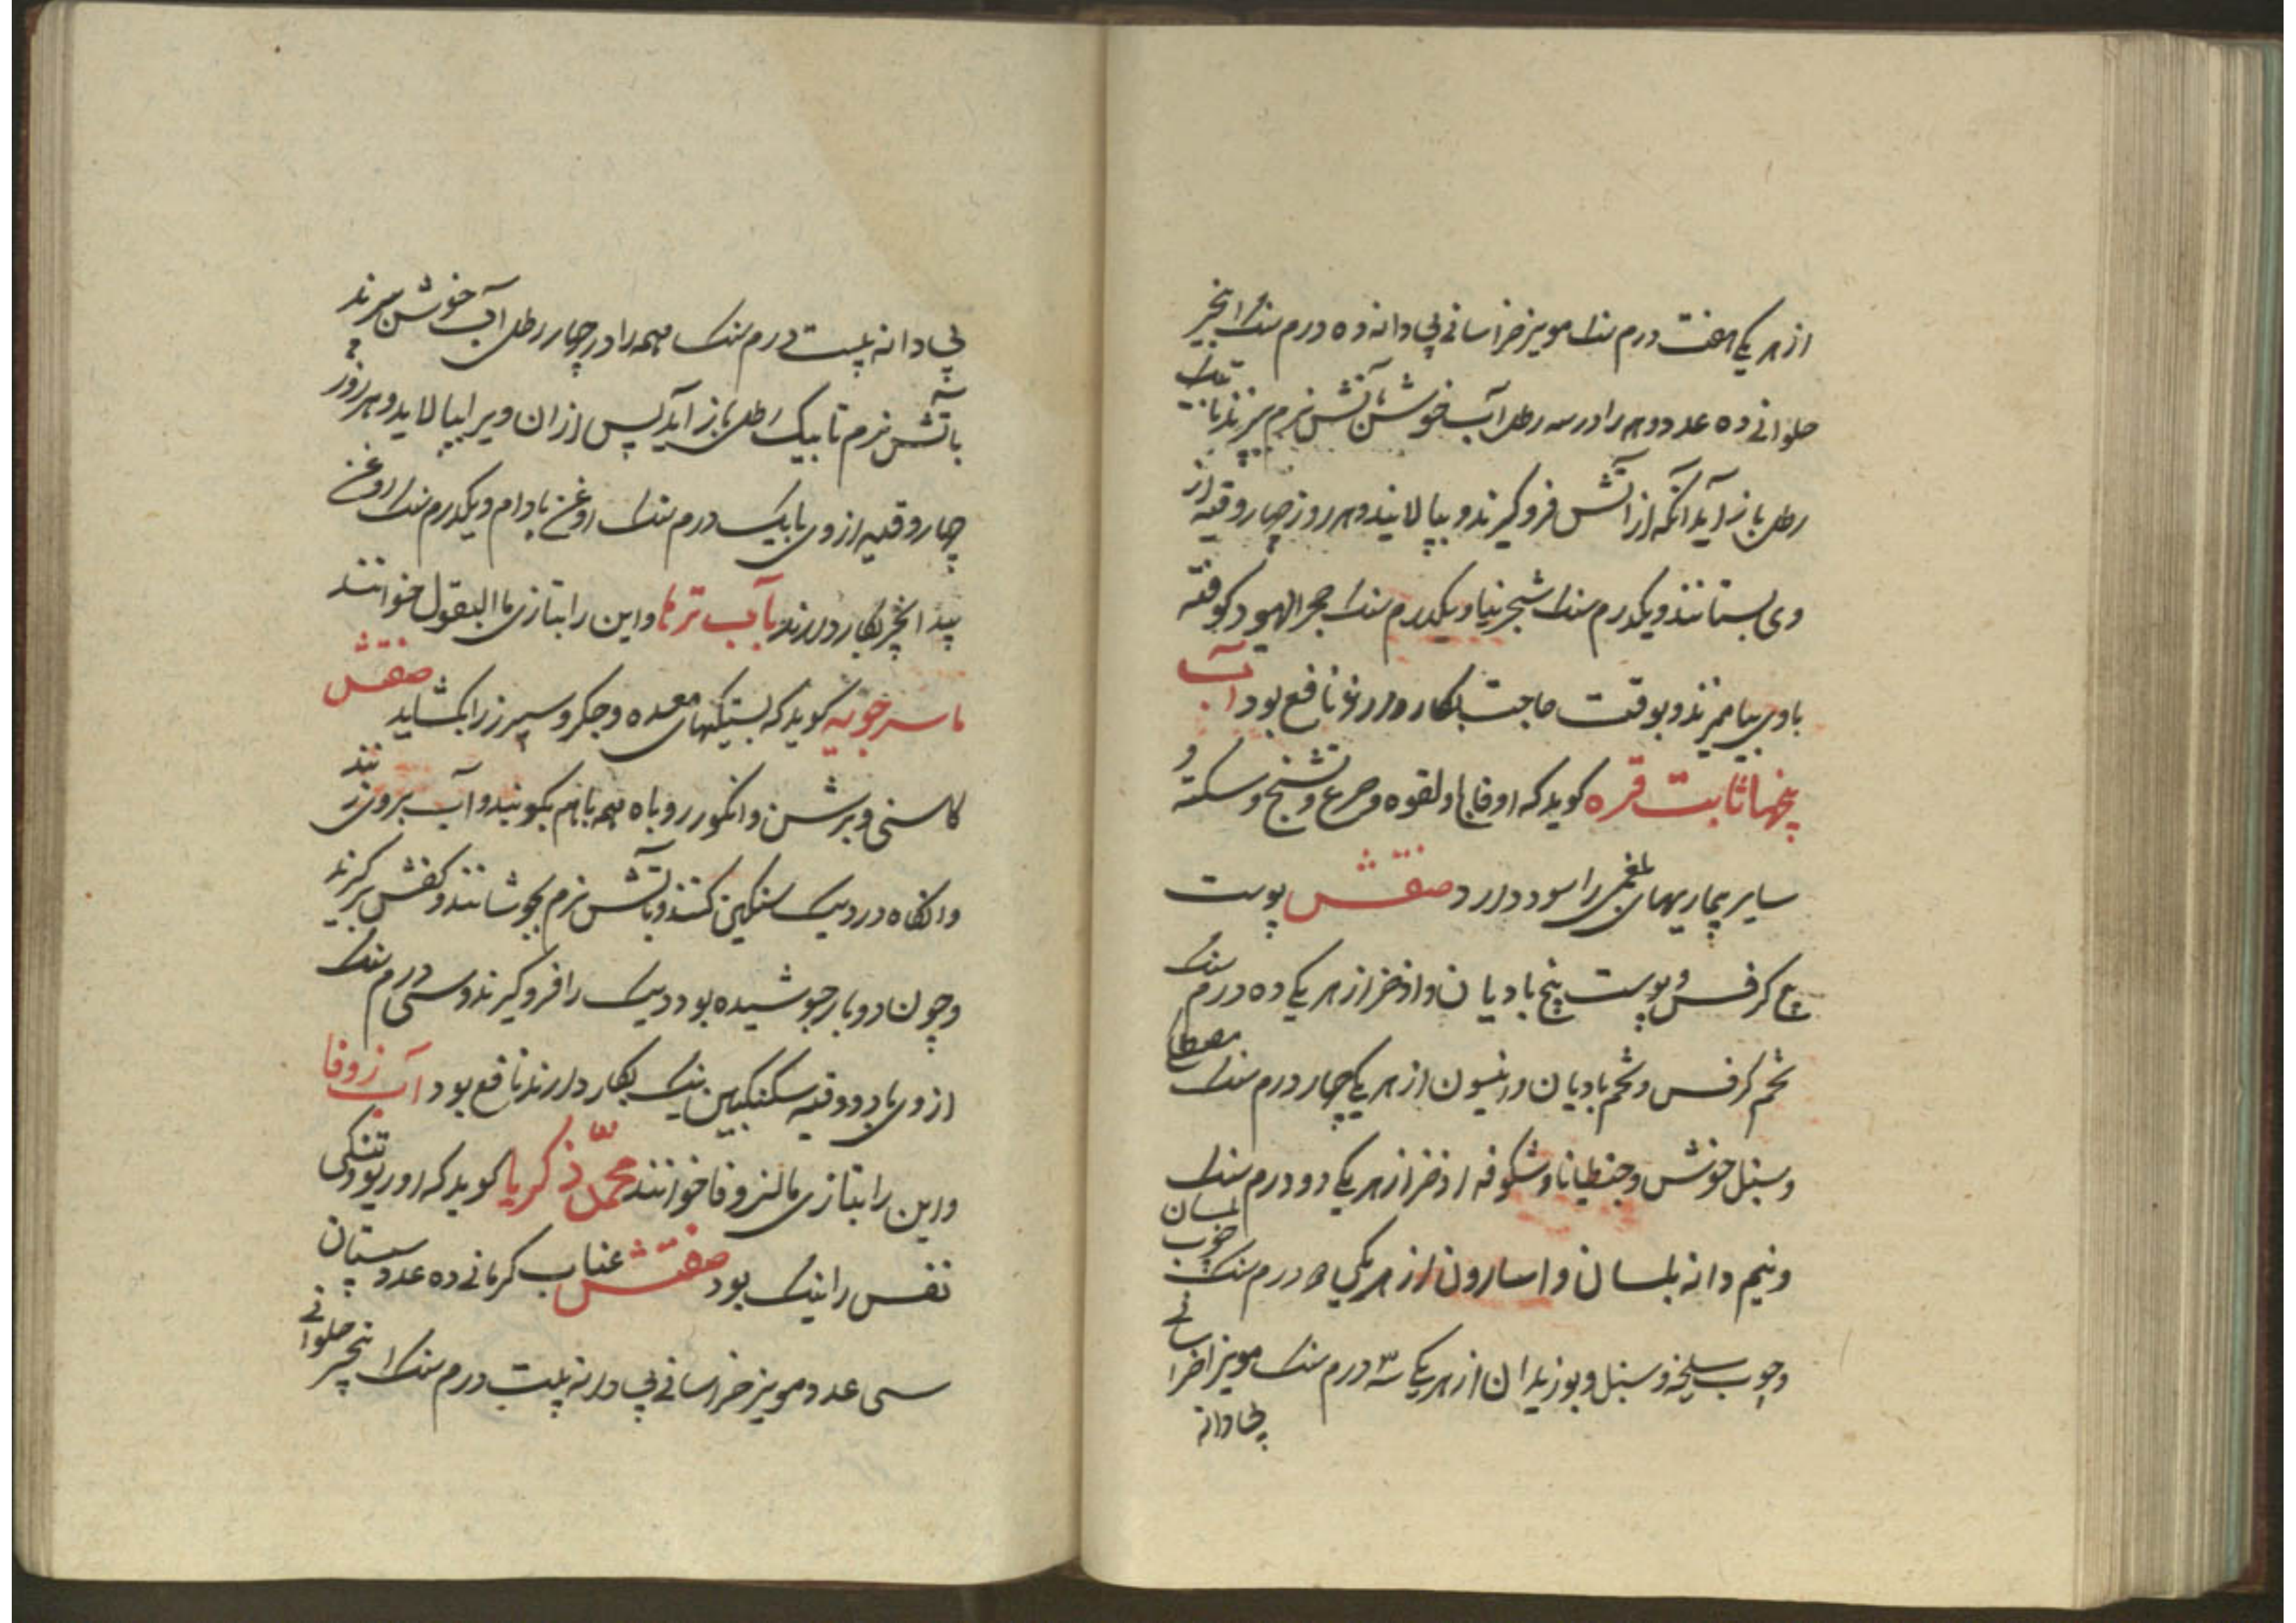 از هر یکی هفت درم سنک مویز خراسانی بی دانه ده درم سنک انجیر
حلوانی ده عدد و همه را در سه رطل آب خوش باتش نرم بپزند تا بیک
رطل باز آید آنکه از آتش فرو کیرند و بپالایند و هر روز چهار وقیه از
وی بستانند و یکدرم سنک شجرنیا و یکدرم سنک حجر الیهود کوفته
با وی بیامیزند و بوقت حاجت بکار دارند نافع بود آب
بیخها ثابت قره کوید که او فالج و لقوه و صرع و تشنج و سکته و
سایر بیماریهای بلغمی را سود دارد صفتش پوست
بیخ کرفس و پوست بیخ بادیان و اذخر از هر یکی ده درم سنک
تخم کرفس و تخم بادیان و انیسون از هر یکی چهار درم سنک مصطکی
و سنبل خوش و جنطیانا و شکوفه اذخر از هر یکی دو درم سنک
و نیم دانه بلسان و اسارون از هر یکی درم سنک چوب بلسان
و چوب سلیخه و سنبل و بوزیدان از هر یکی سه درم سنک مویز خراسانی
بی دانه
بی دانه بیست درم سنک همه را در چهار رطل آب خوش بپزند
باتش نرم تا بیک رطل باز آید پس از آن ویرا بپالاید و هر روز
چهار وقیه از وی با یک درم سنک روغن بادام و یکدرم سنک روغن
بید انجیر بکار دارند آب ترها و این را بتازی ما البقول خوانند
ماسرجویه کوید که بستیکهای معده و جکر و سپرز را بکشاید صفتش
کاسنی و برشن و انکور روباه همه با هم بکوبند و آب بیرون کنند
وانکاه در دیک سنکین کنند و باتش نرم بجوشانند و کفش برکیرند
و چون دو بار جوشیده بود دیک را فرو کیرند و سی درم سنک
از وی با دو وقیه سکنکبین نیک بکار دارند نافع بود آب زوفا
و این را بتازی ما الزوفا خوانند محمد زکریا کوید که او ربو و تنکی
نفس را نیک بود صفتش عناب کرمانی ده عدد سپستان
سی عدد مویز خراسانی بی دانه بیست درم سنک انجیر حلوانی